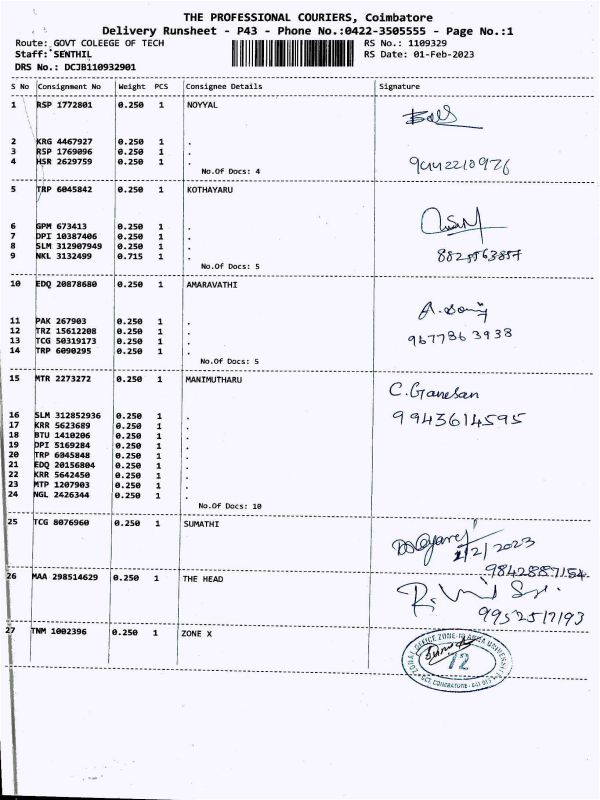 THE PROFESSIONAL COURIERS, Coimbatore
Delivery Runsheet - P43 - Phone No.:0422-3505555 - Page No.:1
Route: GOVT COLEEGE OF TECH RS No.: 1109329
Staff: SENTHIL RS Date: 01-Feb-2023
DRS No.: DCJB110932901
S No Consignment No Weight PCS Consignee Details Signature
1 RSP 1772801 0.250 1 NOYYAL
2 KRG 4467927 0.250 1 .
3 RSP 1769096 0.250 1 .
4 HSR 2629759 0.250 1 . 9442210976
No.Of Docs: 4
5 TRP 6045842 0.250 1 KOTHAYARU
6 GPM 673413 0.250 1 .
7 DPI 10387406 0.250 1 .
8 SLM 312907949 0.250 1 .
9 NKL 3132499 0.715 1 . 8825563857
No.Of Docs: 5
10 EDQ 20878680 0.250 1 AMARAVATHI
11 PAK 267903 0.250 1 .
12 TRZ 15612208 0.250 1 . 9677863938
13 TCG 50319173 0.250 1 .
14 TRP 6090295 0.250 1 .
No.Of Docs: 5
15 MTR 2273272 0.250 1 MANIMUTHARU C. Ganesan
16 SLM 312852936 0.250 1 . 9943614595
17 KRR 5623689 0.250 1 .
18 BTU 1410206 0.250 1 .
19 DPI 5169284 0.250 1 .
20 TRP 6045848 0.250 1 .
21 EDQ 20156804 0.250 1 .
22 KRR 5642450 0.250 1 .
23 MTP 1207903 0.250 1 .
24 NGL 2426344 0.250 1 .
No.Of Docs: 10
25 TCG 8076960 0.250 1 SUMATHI
1/2/2023
26 MAA 298514629 0.250 1 THE HEAD
9952517193
27 TNM 1002396 0.250 1 ZONE X
72